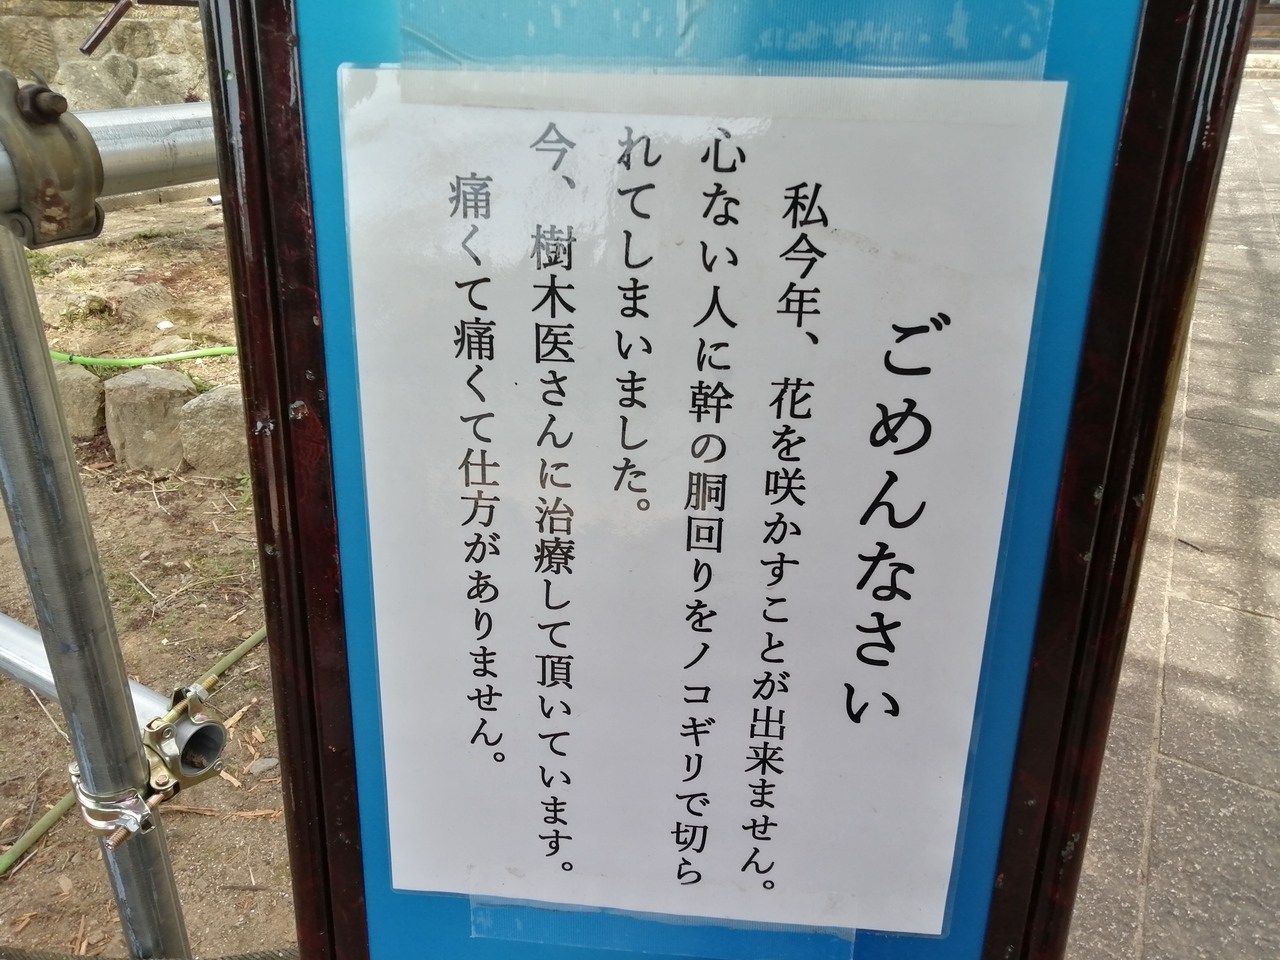 ごめんなさい
私今年、花を咲かすことが出来ません。
心ない人に幹の胴回りをノコギリで切ら
れてしまいました。
今、樹木医さんに治療して頂いています。
痛くて痛くて仕方がありません。